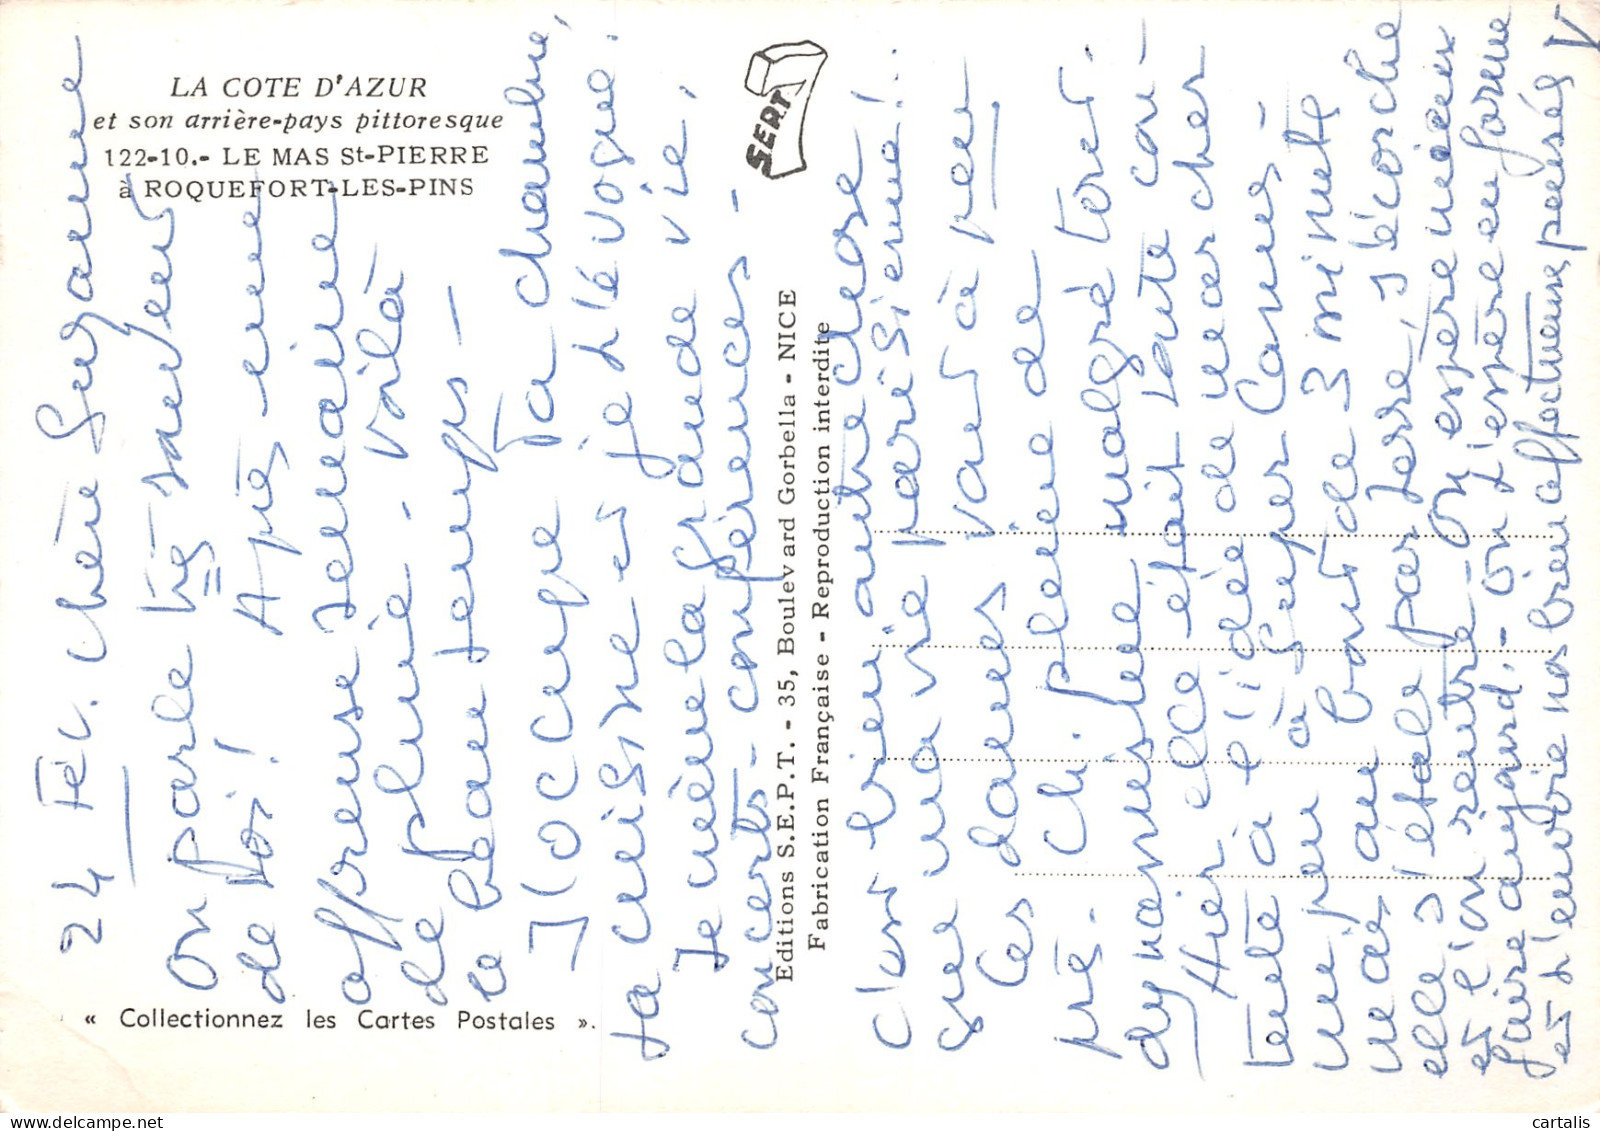 LA COTE D'AZUR
et son arrière-pays pittoresque
122-10.- LE MAS St-PIERRE
à ROQUEFORT-LES-PINS
« Collectionnez les Cartes Postales ».
SEPT
Editions S.E.P.T. - 35, Boulevard Gorbella - NICE
Fabrication Française - Reproduction interdite
24 Fév. Chère Suzanne
On parle très souvent
de toi ! Après une
affreuse semaine
de pluie. voilà
le beau temps -
J'occupe Ta chambre,
ta cuisine et je t'évoque.
Je mène la grande vie,
concerts - conférences -
c'est bien autre chose
que ma vie parisienne !..
Ces dames vont à peu
près. Ch. pleine de
dynamisme malgré tout.
Hier elle était toute con-
tente à l'idée de marcher
un peu à Super Cannes -
mais au bout de 3 minutes
elle s'étale par terre, s'écorche
et l'on rentre - On espère mieux
faire aujourd. - on t'espère en forme
et t'envoie nos bien affectueuses pensées V
cartalis